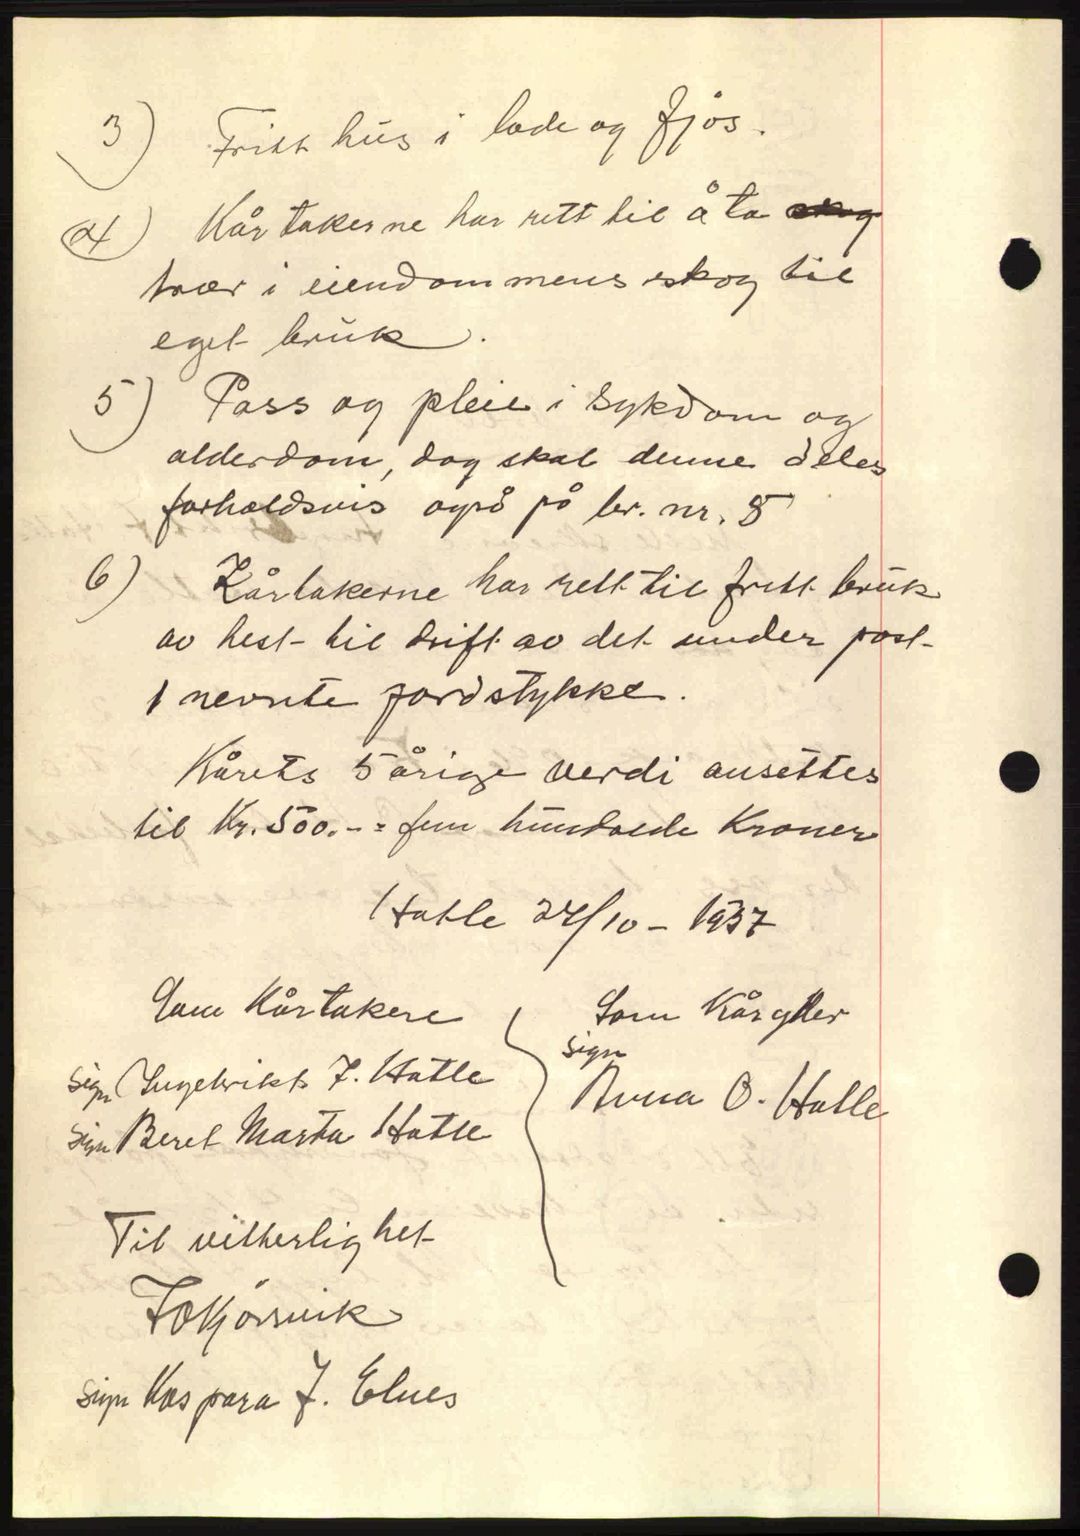 3) Fritt hus i lade og fjøs.
4) Kårtakerne har rett til å ta skog
trær i eiendommens skog til
eget bruk.
5) Pass og pleie i sykdom og
alderdom, dog skal denne deles
forholdsvis også på br. nr. 8
6) Kårtakerne har rett til fritt bruk
av hest til drift av det under post
1 nevnte jordstykke.
Kårets 5 årige verdi ansettes
til Kr. 500.-= fem hundrede Kroner
Hatle 24/10 - 1937
Som Kårtakere
Som Kårgiver
sign Ingebrikt J. Hatle
sign
Anna O. Hatle
sign Beret Marta Hatle
Til vitterlighet
sign Kaspara J. Elnes